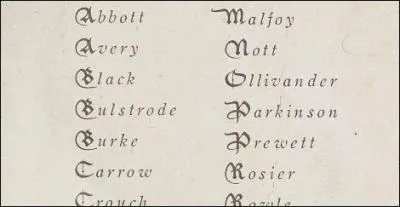 Abbott
Avery
Black
Bulstrode
Burke
Carrow
Crouch
Malfoy
Nott
Ollivander
Parkinson
Prewett
Rosier
Rowle